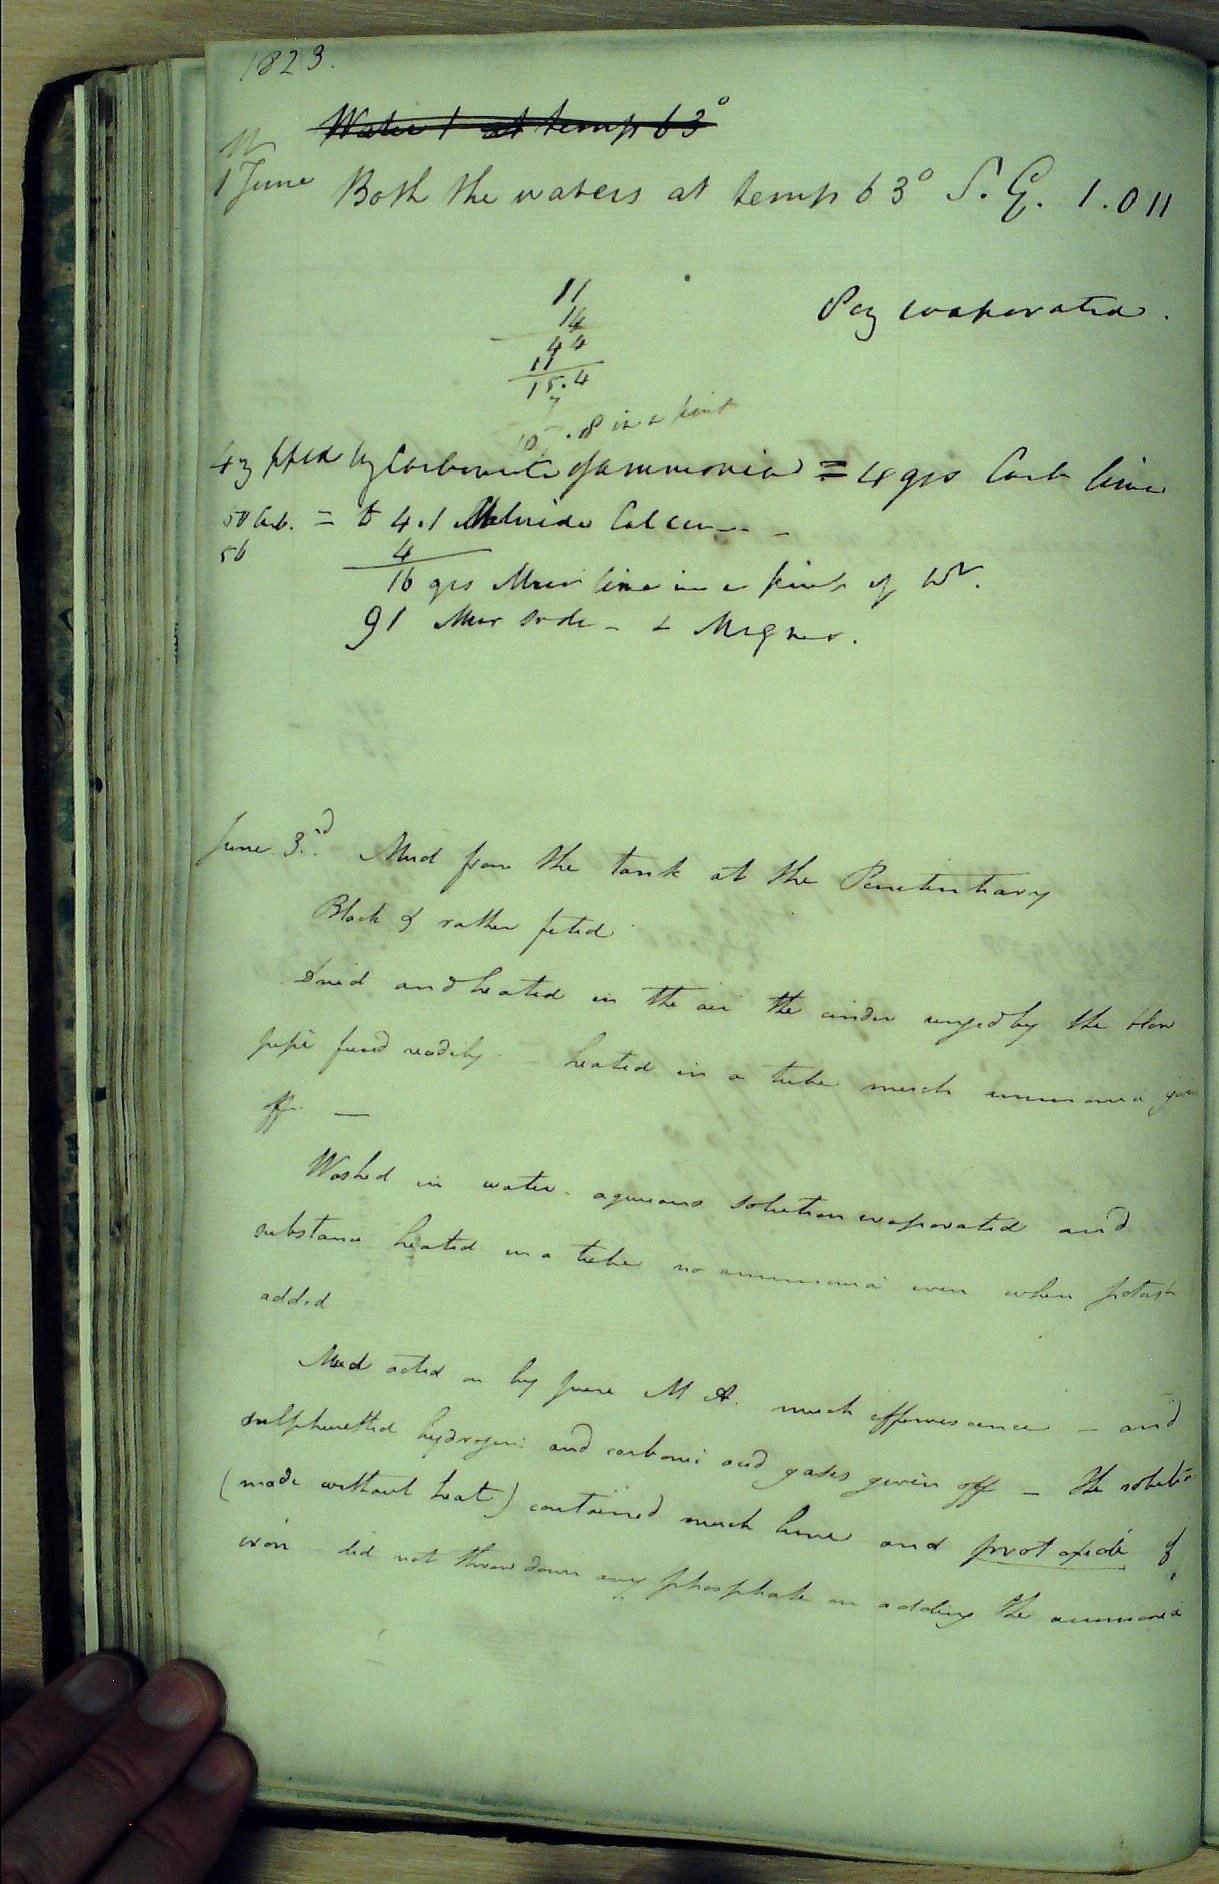 1823.
Water 1 at temp 63°
1 June Both the waters at temp 63° S.G. 1.011
11
14
44
11
15.4
7
.8 in a pint
8 oz evaporated.
4 oz pptd by Carbonate of ammonia = 4 grs Carb lime
50 Carb. = to 4.1 Chloride Calcium -
56
4
16 grs Mur lime in a pint of Wr.
91 Mur Soda - & Magnes.
June 3rd. Mud from the tank at the Penitentiary
Black & rather fetid
Dried and heated in the air the cinder urged by the blow
pipe fused readily - heated in a tube much ammonia given
off —
Washed in water. aqueous solution evaporated and
substance heated in a tube no ammonia even when potash
added
Mud acted on by pure M A. much effervescence - and
sulphuretted hydrogen and carbonic acid gases given off - the solution
(made without heat) contained much lime and protoxide of
iron - did not throw down any phosphate on adding the ammonia